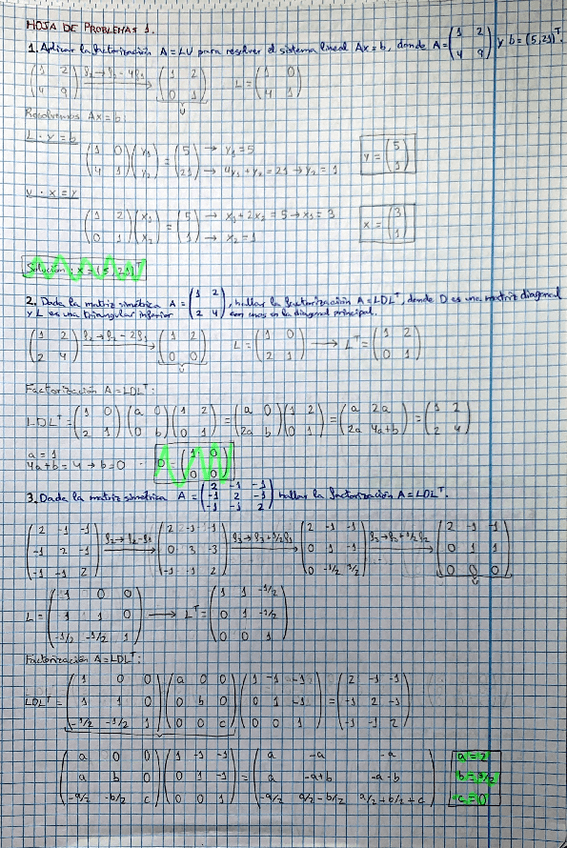 HOJA DE PROBLEMAS 1.
1. Aplicar la factorización A = LU para resolver el sistema lineal Ax = b, donde A = (1 2; 4 9) y b = (5,21)^T.
(1 2; 4 9) f2→f2-4f1 (1 2; 0 1) L = (1 0; 4 1)
U
Resolvemos Ax = b:
L · y = b
(1 0; 4 1)(y1; y2) = (5; 21) → y1 = 5 → 4y1 + y2 = 21 → y2 = 1 y = (5; 1)
U · x = y
(1 2; 0 1)(x1; x2) = (5; 1) → x1 + 2x2 = 5 → x1 = 3 → x2 = 1 x = (3; 1)
Solución: x =
2. Dada la matriz simétrica A = (1 2; 2 4), hallar la factorización A = LDL^T, donde D es una matriz diagonal
y L es una triangular inferior con unos en la diagonal principal.
(1 2; 2 4) f2→f2-2f1 (1 2; 0 0) L = (1 0; 2 1) → L^T = (1 2; 0 1)
U
Factorización A = LDL^T:
LDL^T = (1 0; 2 1)(a 0; 0 b)(1 2; 0 1) = (a 0; 2a b)(1 2; 0 1) = (a 2a; 2a 4a+b) = (1 2; 2 4)
a = 1
4a+b = 4 → b = 0 D = (1 0; 0 0)
3. Dada la matriz simétrica A = (2 -1 -1; -1 2 -1; -1 -1 2) hallar la factorización A = LDL^T.
(2 -1 -1; -1 2 -1; -1 -1 2) (2 -1 -1; 0 3 -3; -1 -1 2) f3→f3+1/2f1 (2 -1 -1; 0 1 -1; 0 -3/2 3/2) (2 -1 -1; 0 1 1; 0 0 0)
U
L = (1 0 0; 1 1 0; -1/2 -1/2 1) → L^T = (1 1 -1/2; 0 1 -1/2; 0 0 1)
Factorización A = LDL^T:
LDL^T = (1 0 0; 1 1 0; -1/2 -1/2 1)(a 0 0; 0 b 0; 0 0 c)(1 -1 -1; 0 1 -1; 0 0 1) = (2 -1 -1; -1 2 -1; -1 -1 2)
(a 0 0; a b 0; -a/2 -b/2 c)(1 -1 -1; 0 1 -1; 0 0 1) = (a -a -a; a -a+b -a-b; -a/2 a/2-b/2 a/2+b/2+c)
a = 2
b = 3/2
c = 0